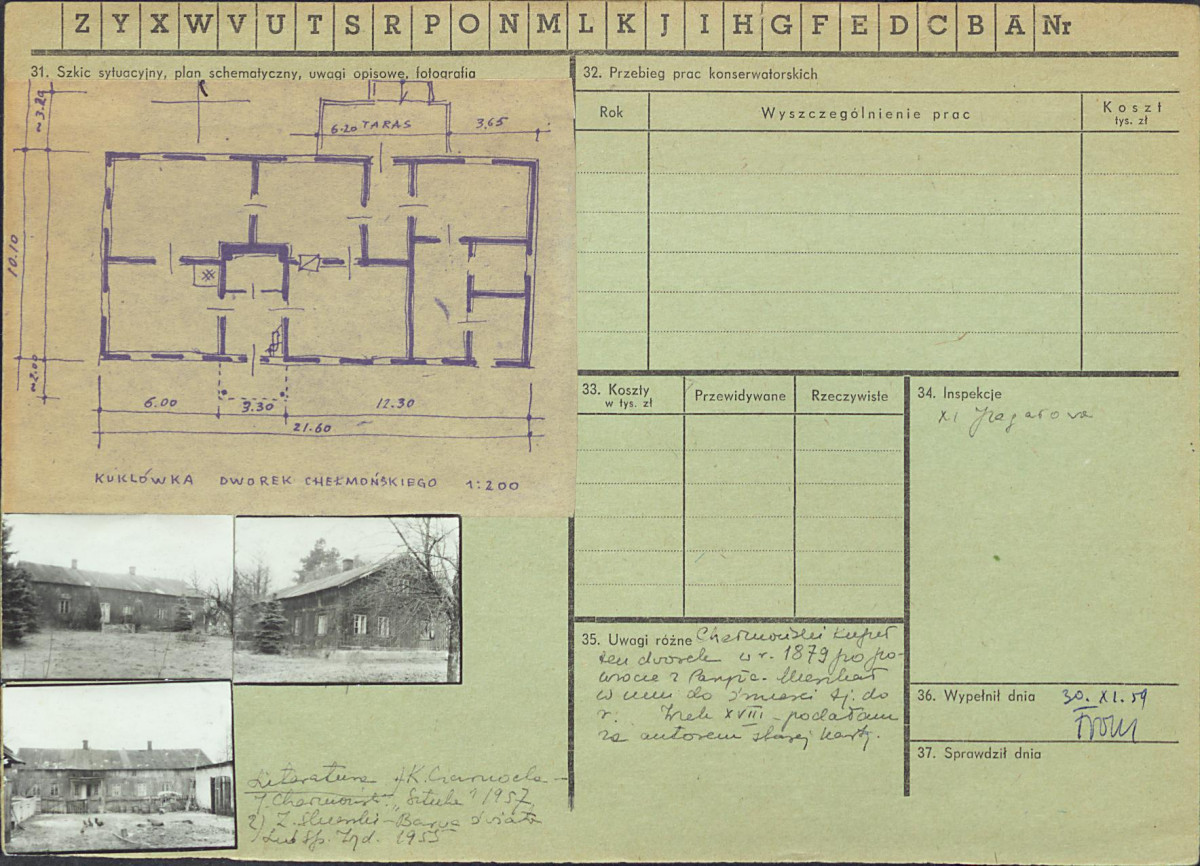 Z Y X W V U T S R P O N M L K J I H G F E D C B A Nr
31. Szkic sytuacyjny, plan schematyczny, uwagi opisowe, fotografia
~3.29
6.20 TARAS
3,65
10.10
~2.00
6.00
3.30
12.30
21.60
KUKLÓWKA DWOREK CHEŁMOŃSKIEGO 1:200
32. Przebieg prac konserwatorskich
Rok
Wyszczególnienie prac
Koszt
tys. zł
33. Koszty
w tys. zł
Przewidywane
Rzeczywiste
34. Inspekcje
XI
35. Uwagi różne Chełmoński kupił
ten dworek w r. 1879 po po-
wrocie z Paryża. Mieszkał
w nim do śmierci tj. do
r. Wiek XVIII - podałam
za autorem starej karty.
36. Wypełnił dnia 30. XI. 59
37. Sprawdził dnia
Literatura 1) K. Czarnocka -
J. Chełmoński "Sztuka" 1957
2)
1955